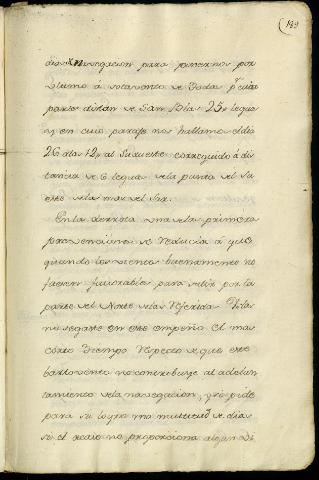 149
dia navegacion para ponernos por
ultimo á sotavento de Todas pr. cuia
parte distan de San Blas 25 legua
s, en cuio parage nos hallamos el dia
26 á las 12 al Sudueste corregido á dis
tancia de 6 leguas de la punta del Su
este de la mas del Sur.
En la derrota una de las primeras
prevenciones se reducia á que
quando los vientos buenamente no
fuesen favorables para salir por la
parte del Norte de las referidas Yslas
no se gaste en este empeño el mas
corto tiempo respecto de que este
barlovento no contribuye al adelan
tamiento de la navegacion, y si pide
para su logro una multitud de dias
si el acaso no proporciona algun